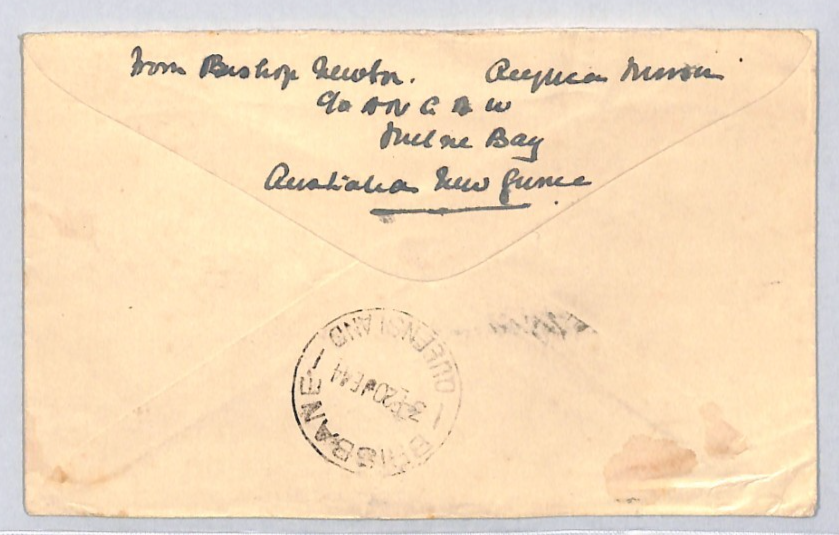 From Bishop Newton. Anglican Mission
c/o A N G A U
Milne Bay
Australian New Guinea
BRISBANE
QUEENSLAND
20 JE 44